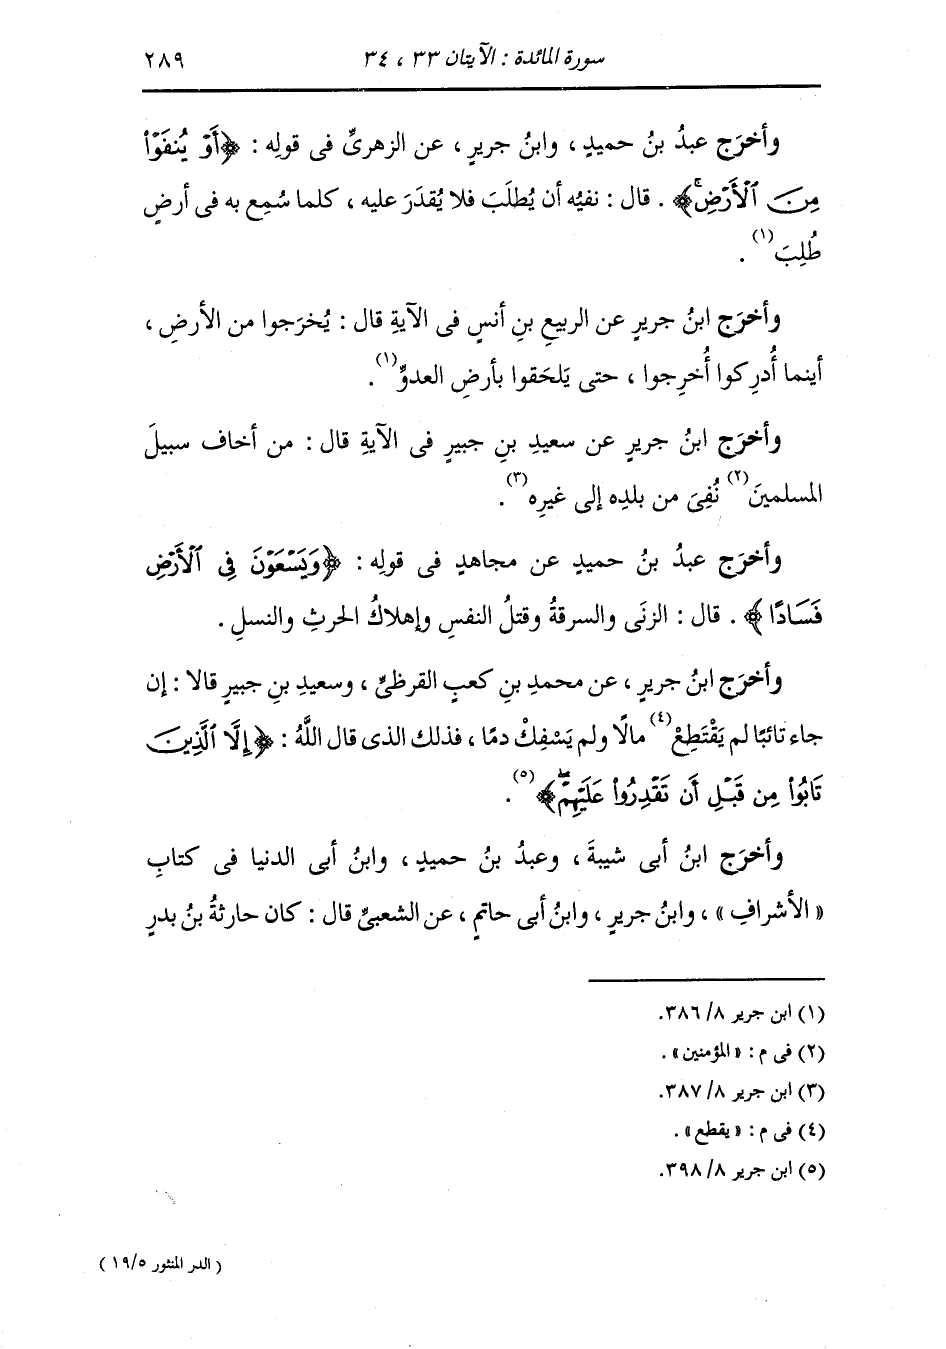 سورة المائدة : الآيتان ٣٣ ، ٣٤ ٢٨٩
وأخرَج عبدُ بنُ حميدٍ ، وابنُ جريرٍ ، عن الزهرىِّ فى قولِه : ﴿أَوْ يُنفَوْا۟
مِنَ ٱلْأَرْضِ ۚ﴾ . قال : نفيُه أن يُطلَبَ فلا يُقدَرَ عليه ، كلما سُمِع به فى أرضٍ
طُلِبَ(١) .
وأخرَج ابنُ جريرٍ عن الربيعِ بنِ أنسٍ فى الآيةِ قال : يُخرَجوا من الأرضِ ،
أينما أُدرِكوا أُخرِجوا ، حتى يَلحَقوا بأرضِ العدوِّ(١) .
وأخرَج ابنُ جريرٍ عن سعيدِ بنِ جبيرٍ فى الآيةِ قال : من أخاف سبيلَ
المسلمينَ(٢) نُفِىَ من بلدِه إلى غيرِه(٣) .
وأخرَج عبدُ بنُ حميدٍ عن مجاهدٍ فى قولِه : ﴿وَيَسْعَوْنَ فِى ٱلْأَرْضِ
فَسَادًا﴾ . قال : الزنَى والسرقةُ وقتلُ النفسِ وإهلاكُ الحرثِ والنسلِ .
وأخرَج ابنُ جريرٍ ، عن محمدِ بنِ كعبٍ القرظىِّ ، وسعيدِ بنِ جبيرٍ قالا : إن
جاء تائبًا لم يَقْتَطِعْ(٤) مالًا ولم يَسْفِكْ دمًا ، فذلك الذى قال اللَّهُ : ﴿إِلَّا ٱلَّذِينَ
تَابُوا۟ مِن قَبْلِ أَن تَقْدِرُوا۟ عَلَيْهِمْ ۖ﴾(٥) .
وأخرَج ابنُ أبى شيبةَ ، وعبدُ بنُ حميدٍ ، وابنُ أبى الدنيا فى كتابِ
« الأشرافِ » ، وابنُ جريرٍ ، وابنُ أبى حاتمٍ ، عن الشعبىِّ قال : كان حارثةُ بنُ بدرٍ
(١) ابن جرير ٨/ ٣٨٦.
(٢) فى م : « المؤمنين » .
(٣) ابن جرير ٨/ ٣٨٧.
(٤) فى م : « يقطع » .
(٥) ابن جرير ٨/ ٣٩٨.
( الدر المنثور ١٩/٥ )